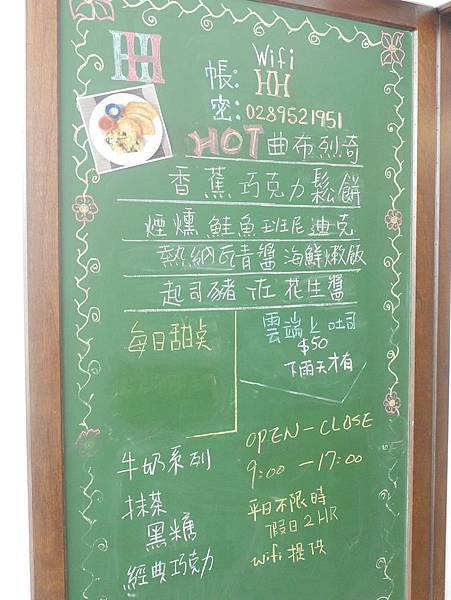 HH
Wifi
帳: HH
密: 0289521951
HOT 曲布列奇
香蕉巧克力鬆餅
煙燻鮭魚班尼迪克
熱納瓦青醬海鮮燉飯
起司豬佐花生醬
每日甜点
雲端上吐司
$50
下雨天才有
牛奶系列
抹茶
黑糖
經典巧克力
OPEN-CLOSE
9:00-17:00
平日不限時
假日2HR
wifi提供